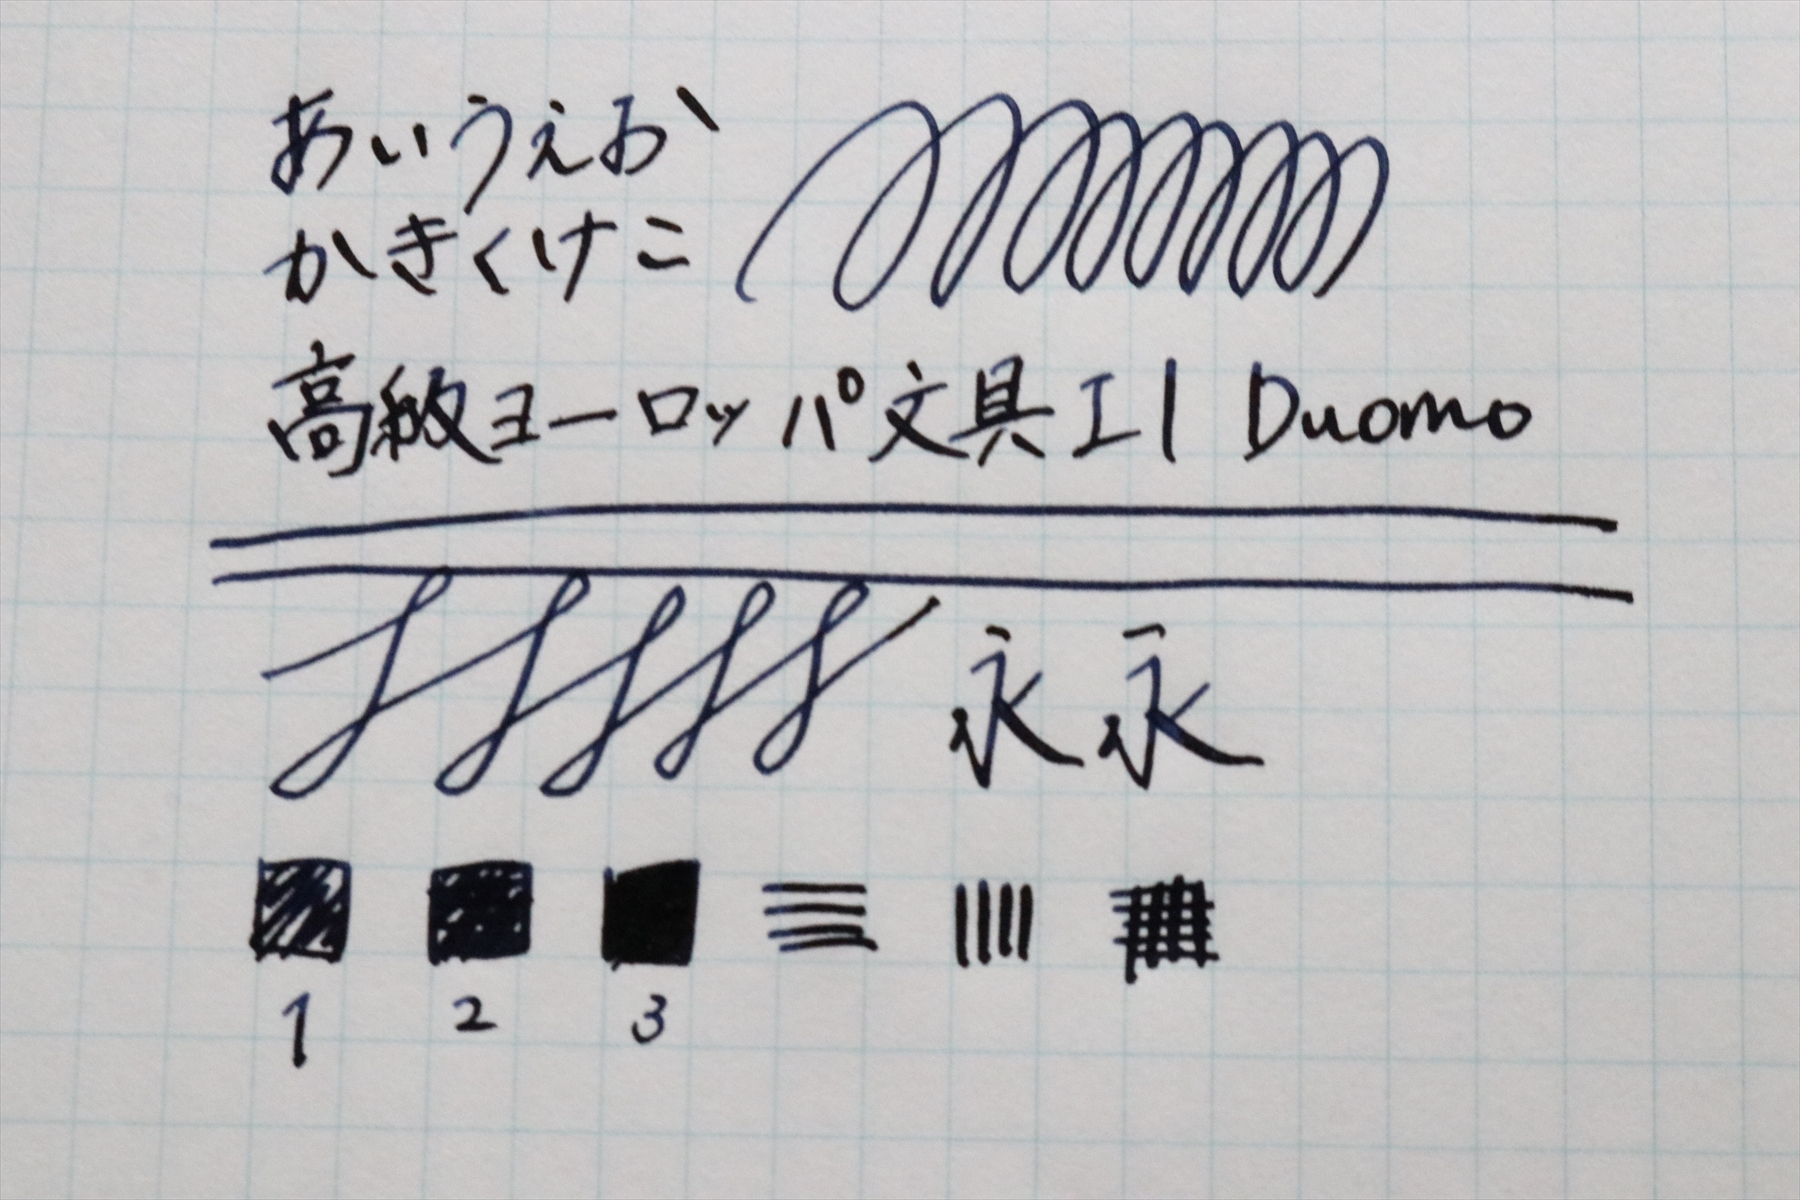 あいうえお
かきくけこ
高級ヨーロッパ文具Il Duomo
永永
1 2 3